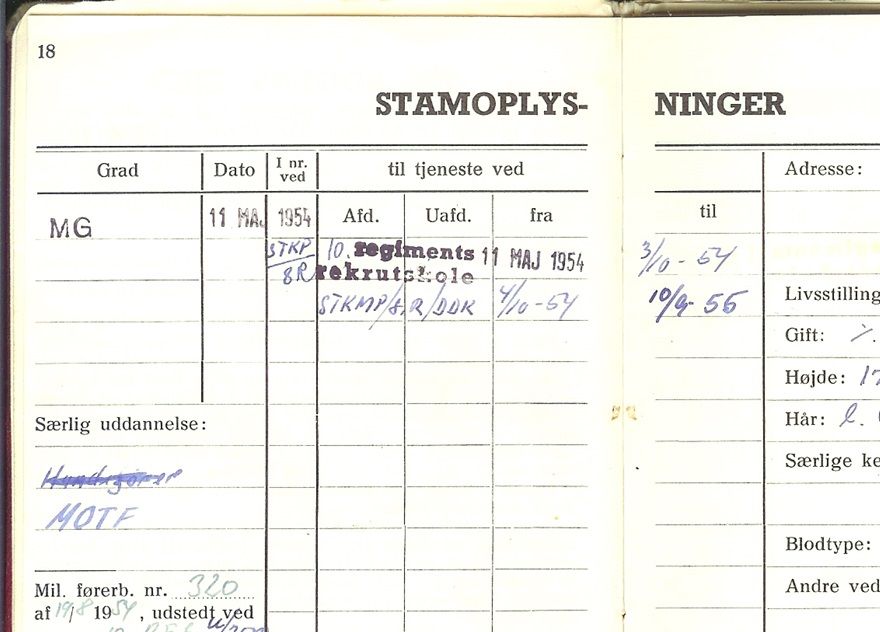 18
STAMOPLYS- NINGER
Grad Dato I nr. ved til tjeneste ved Adresse:
MG 11 MAJ 1954 Afd. Uafd. fra til
STKP 10. regiments 11 MAJ 1954 3/10 - 54
8R rekrutskole
STKMP/8.R/DDK 4/10-54 10/9- 55 Livsstilling
Gift: ./.
Højde: 17
Hår: l.
Særlig uddannelse:
Særlige ke
MOTF
Blodtype:
Mil. førerb. nr. 320 Andre ved
af 19/8 1954, udstedt ved